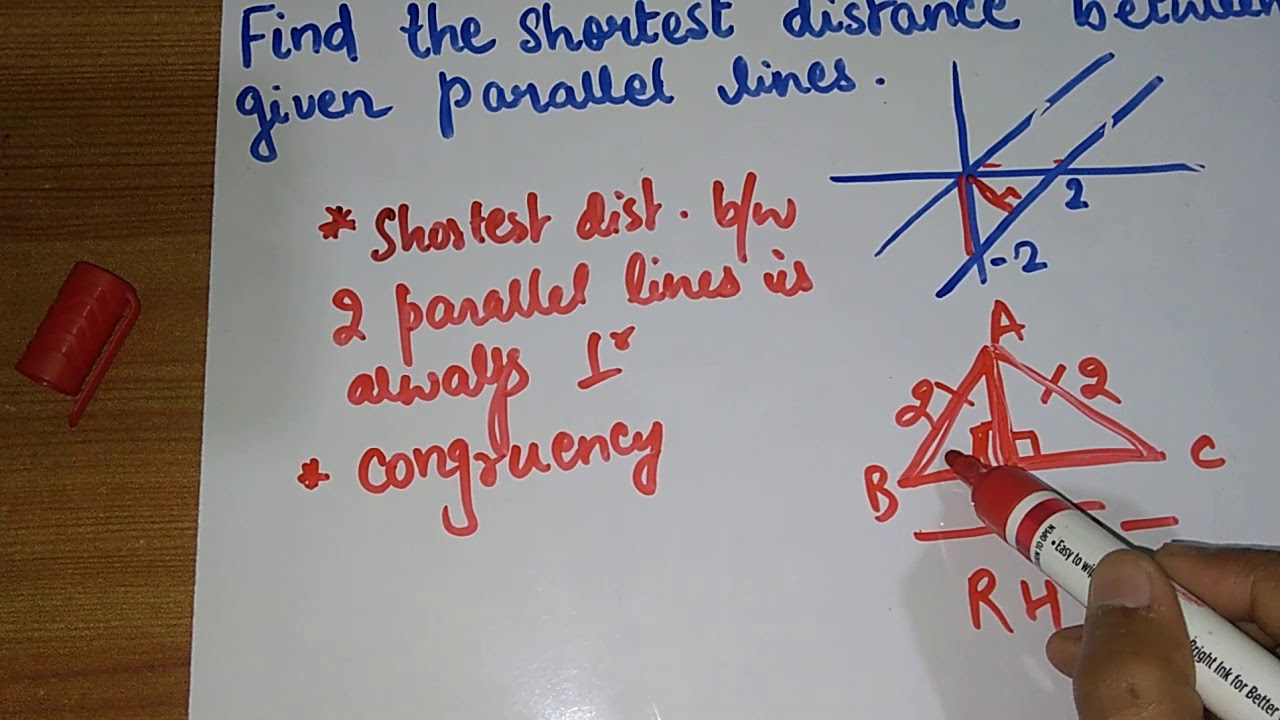 Find the shortest distance between
given parallel lines.
* Shortest dist. b/w
2 parallel lines is
always ⊥r
* congruency
2
-2
A
2
2
B
C
R H
TO OPEN
• Easy to wi
Bright Ink for Better